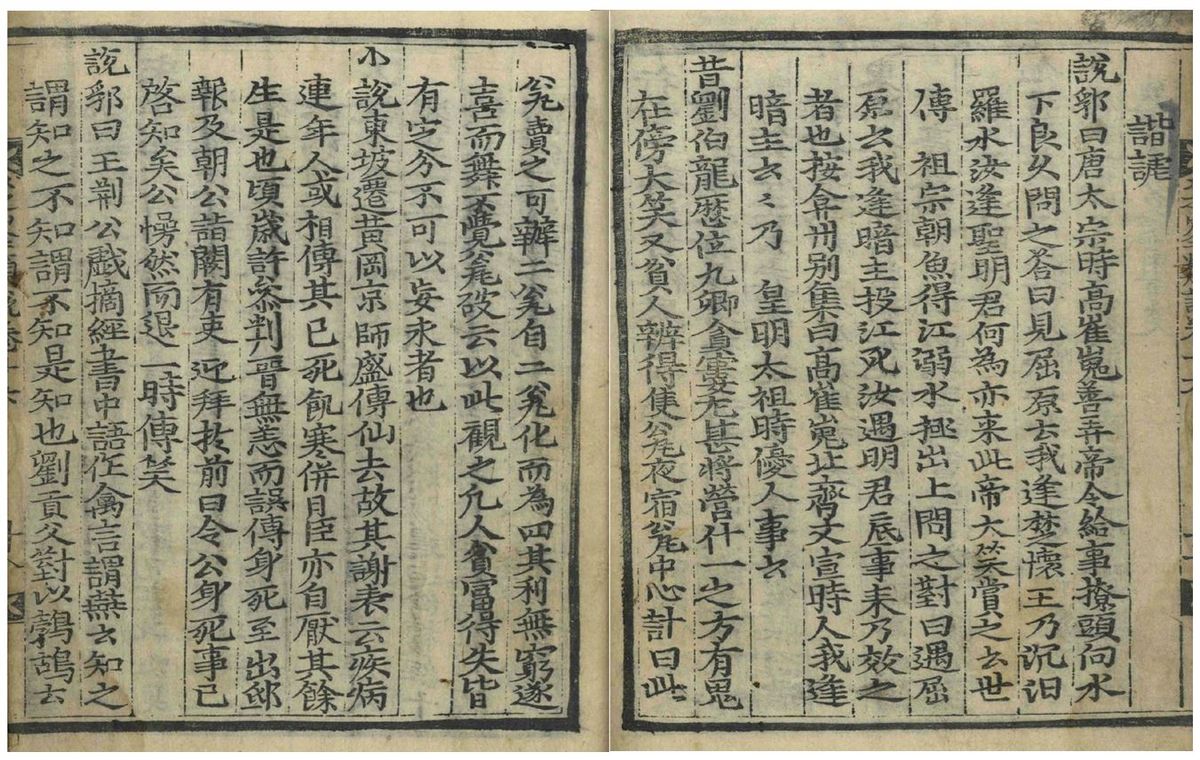 諧謔
說郛曰唐太宗時高崔嵬善弄帝令給事撩頭向水
下良久問之答曰見屈原云我逢楚懷王乃沉汨
羅水汝逢聖明君何為亦来此帝大笑賞之云世
傳 祖宗朝魚得江溺水拯出上問之對曰遇屈
原云我逢暗主投江死汝遇明君底事来乃效之
者也按弇州别集曰高崔嵬址齊文宣時人我逢
暗主云々乃 皇明太祖時優人事云
昔劉伯龍歷位九卿貪窶尤甚將營什一之方有鬼
在傍大笑又貧人辦得隻瓮夜宿瓮中心計曰此
瓮賣之可辦二瓮自二瓮化而為四其利無窮遂
喜而舞不覺瓮破云以此觀之凡人貧富得失皆
有定分不可以妄求者也
小說東坡遷黃岡京師盛傳仙去故其謝表云疾病
連年人或相傳其已死飢寒併日臣亦自厭其餘
生是也頃歲許叅判晋無恙而誤傳身死至出邸
報及朝公詣闕有吏迎拜扵前曰令公身死事已
啓知矣公愕然而退一時傳笑
說郛曰王荆公戲摘經書中語作禽言謂燕云知之
謂知之不知謂不知是知也劉貢父對以鵓鴣云